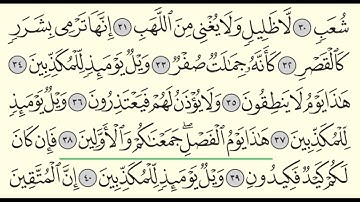 شُعَبٍ ٣٠ لَّا ظَلِيلٍ وَلَا يُغْنِي مِنَ اللَّهَبِ ٣١ إِنَّهَا تَرْمِي بِشَرَرٍ
كَالْقَصْرِ ٣٢ كَأَنَّهُ جِمَالَتٌ صُفْرٌ ٣٣ وَيْلٌ يَوْمَئِذٍ لِّلْمُكَذِّبِينَ ٣٤
هَٰذَا يَوْمُ لَا يَنطِقُونَ ٣٥ وَلَا يُؤْذَنُ لَهُمْ فَيَعْتَذِرُونَ ٣٦ وَيْلٌ يَوْمَئِذٍ
لِّلْمُكَذِّبِينَ ٣٧ هَٰذَا يَوْمُ الْفَصْلِ ۖ جَمَعْنَاكُمْ وَالْأَوَّلِينَ ٣٨ فَإِن كَانَ
لَكُمْ كَيْدٌ فَكِيدُونِ ٣٩ وَيْلٌ يَوْمَئِذٍ لِّلْمُكَذِّبِينَ ٤٠ إِنَّ الْمُتَّقِينَ